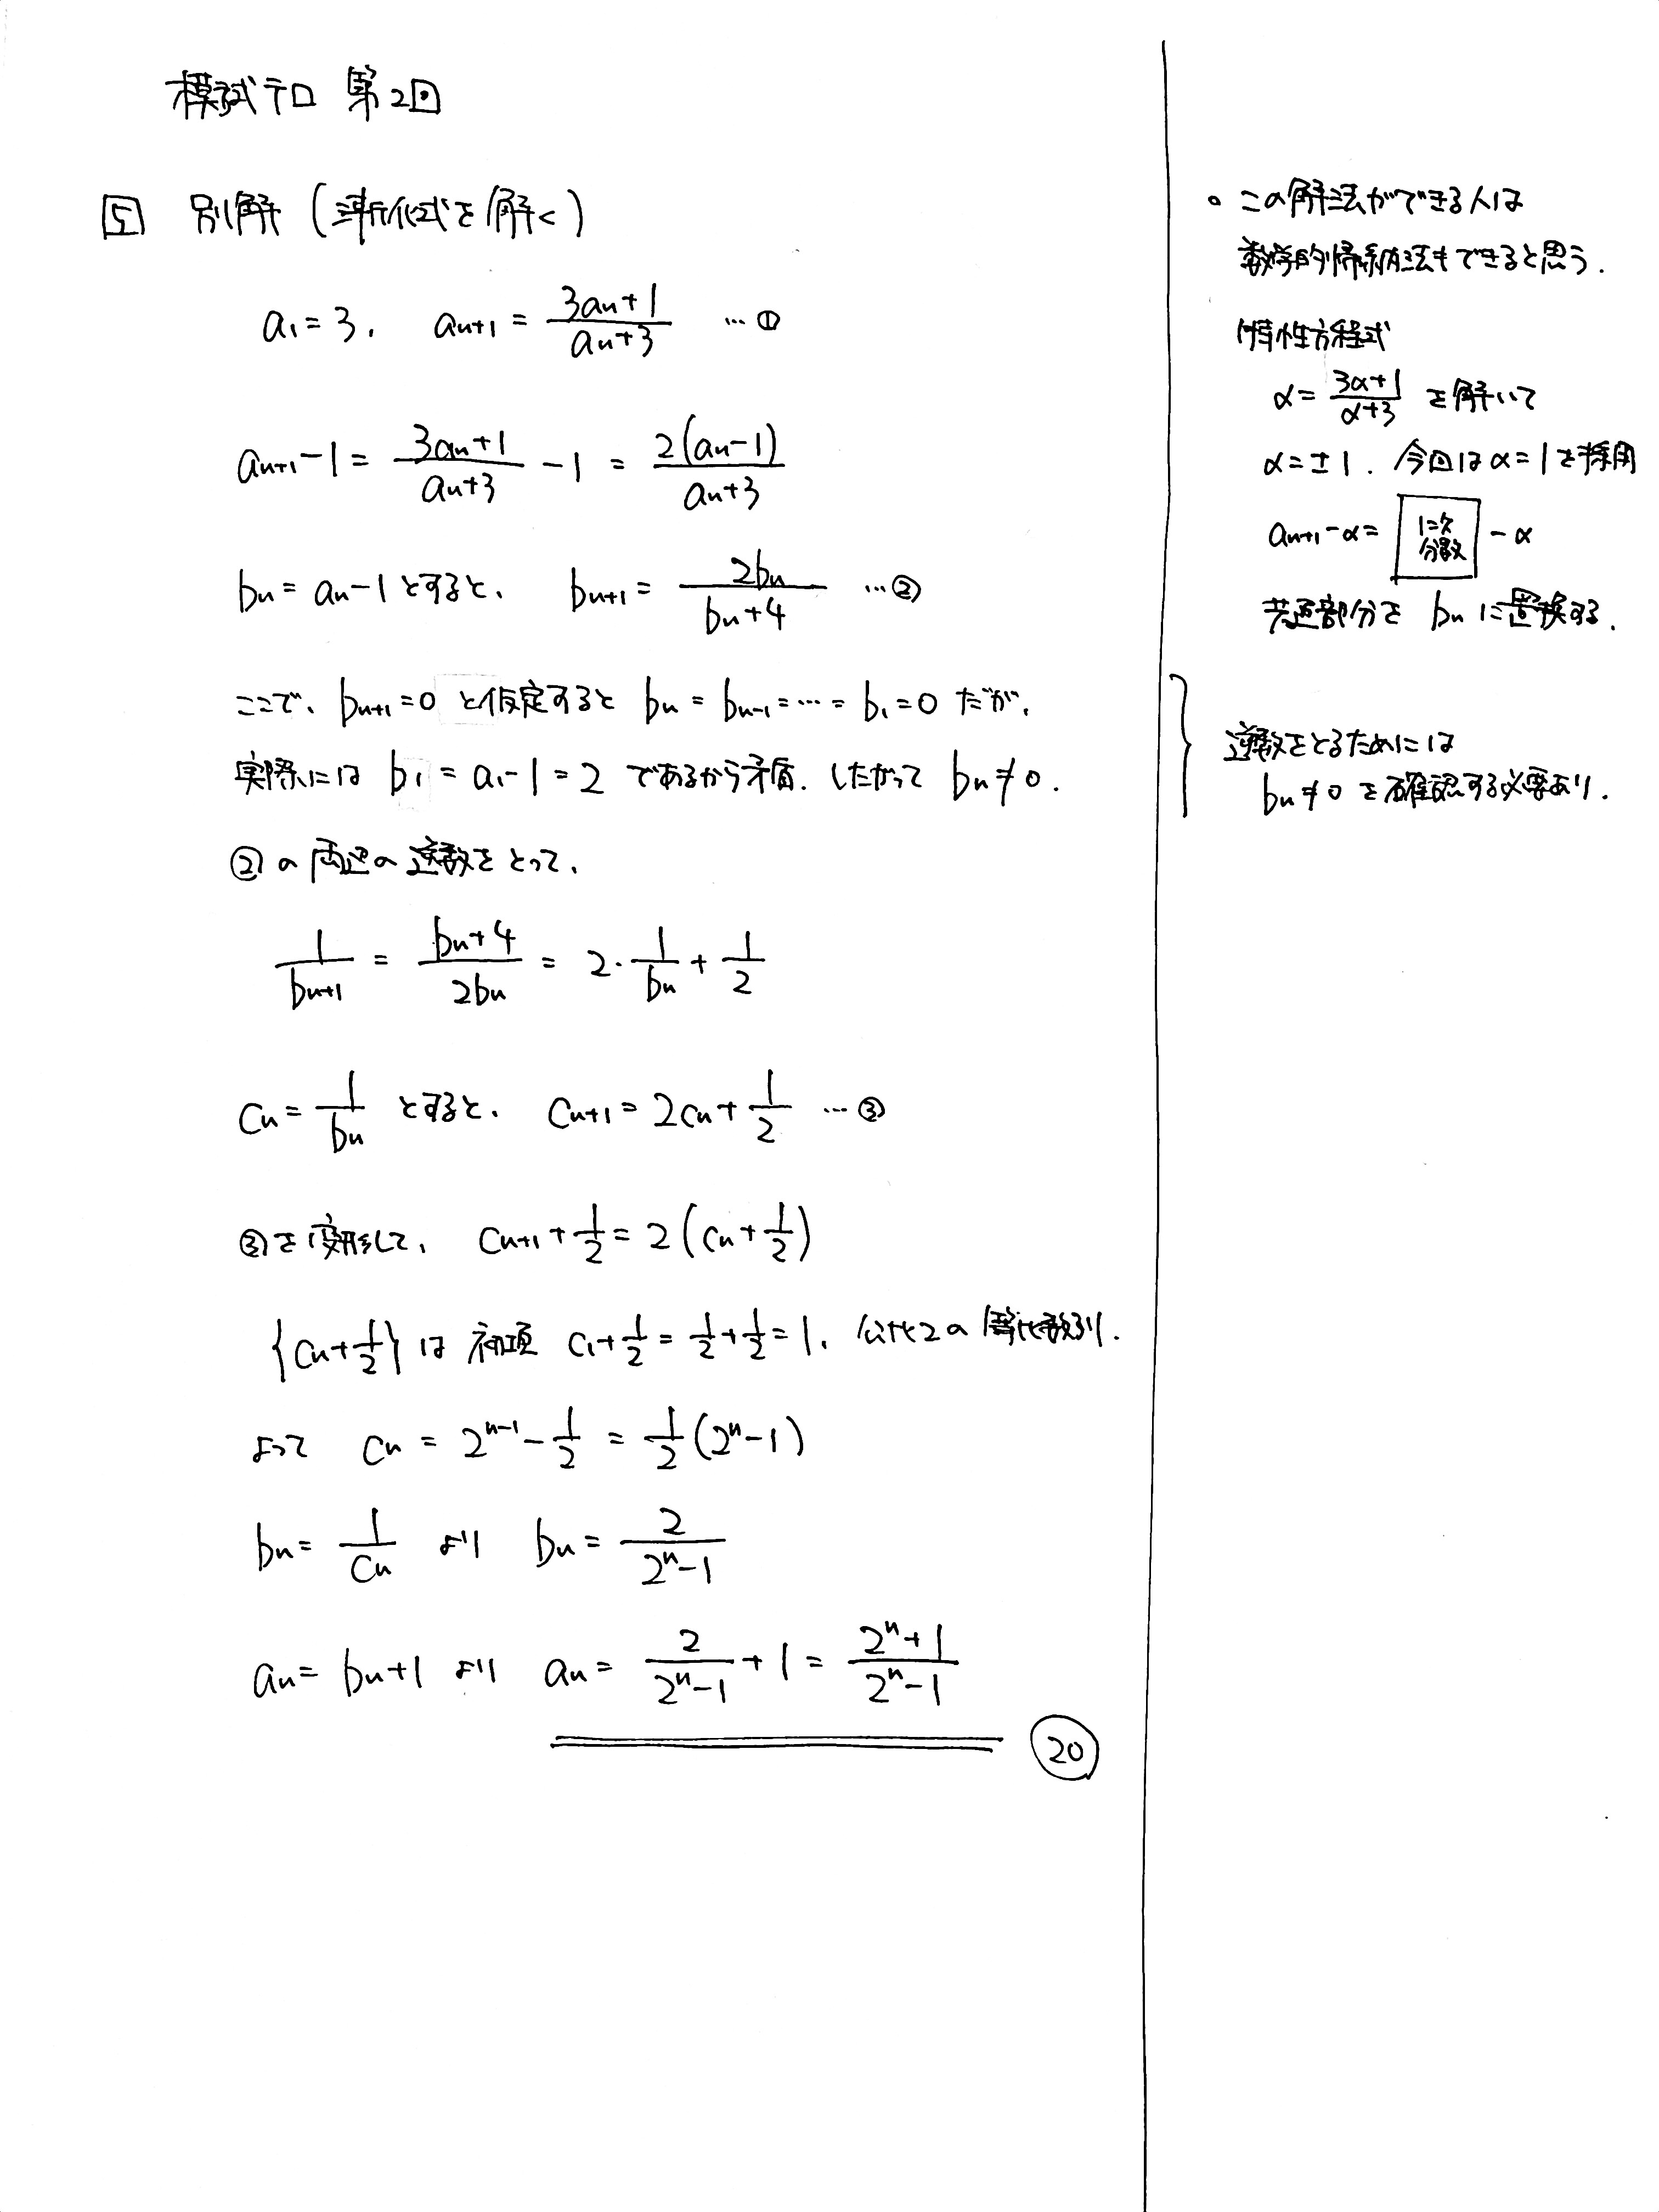 模試テロ 第2回
5 別解 (漸化式を解く)
a₁ = 3, aₙ₊₁ = (3aₙ+1)/(aₙ+3) … ①
aₙ₊₁ − 1 = (3aₙ+1)/(aₙ+3) − 1 = 2(aₙ−1)/(aₙ+3)
bₙ = aₙ − 1 とすると、 bₙ₊₁ = 2bₙ/(bₙ+4) … ②
ここで、bₙ₊₁ = 0 と仮定すると bₙ = bₙ₋₁ = … = b₁ = 0 だが、
実際には b₁ = a₁ − 1 = 2 であるから矛盾. したがって bₙ ≠ 0.
②の両辺の逆数をとって、
1/bₙ₊₁ = (bₙ+4)/2bₙ = 2・1/bₙ + 1/2
cₙ = 1/bₙ とすると、 cₙ₊₁ = 2cₙ + 1/2 … ③
③を変形して、 cₙ₊₁ + 1/2 = 2(cₙ + 1/2)
{cₙ + 1/2} は 初項 c₁ + 1/2 = 1/2 + 1/2 = 1, 公比2の等比数列.
よって cₙ = 2ⁿ⁻¹ − 1/2 = 1/2(2ⁿ − 1)
bₙ = 1/cₙ より bₙ = 2/(2ⁿ−1)
aₙ = bₙ + 1 より aₙ = 2/(2ⁿ−1) + 1 = (2ⁿ+1)/(2ⁿ−1)
20
。この解法ができる人は
数学的帰納法もできると思う.
特性方程式
α = (3α+1)/(α+3) を解いて
α = ±1. 今回は α = 1 を採用
aₙ₊₁ − α = 1次分数 − α
共通部分を bₙ に置換する.
逆数をとるためには
bₙ ≠ 0 を確認する必要あり.